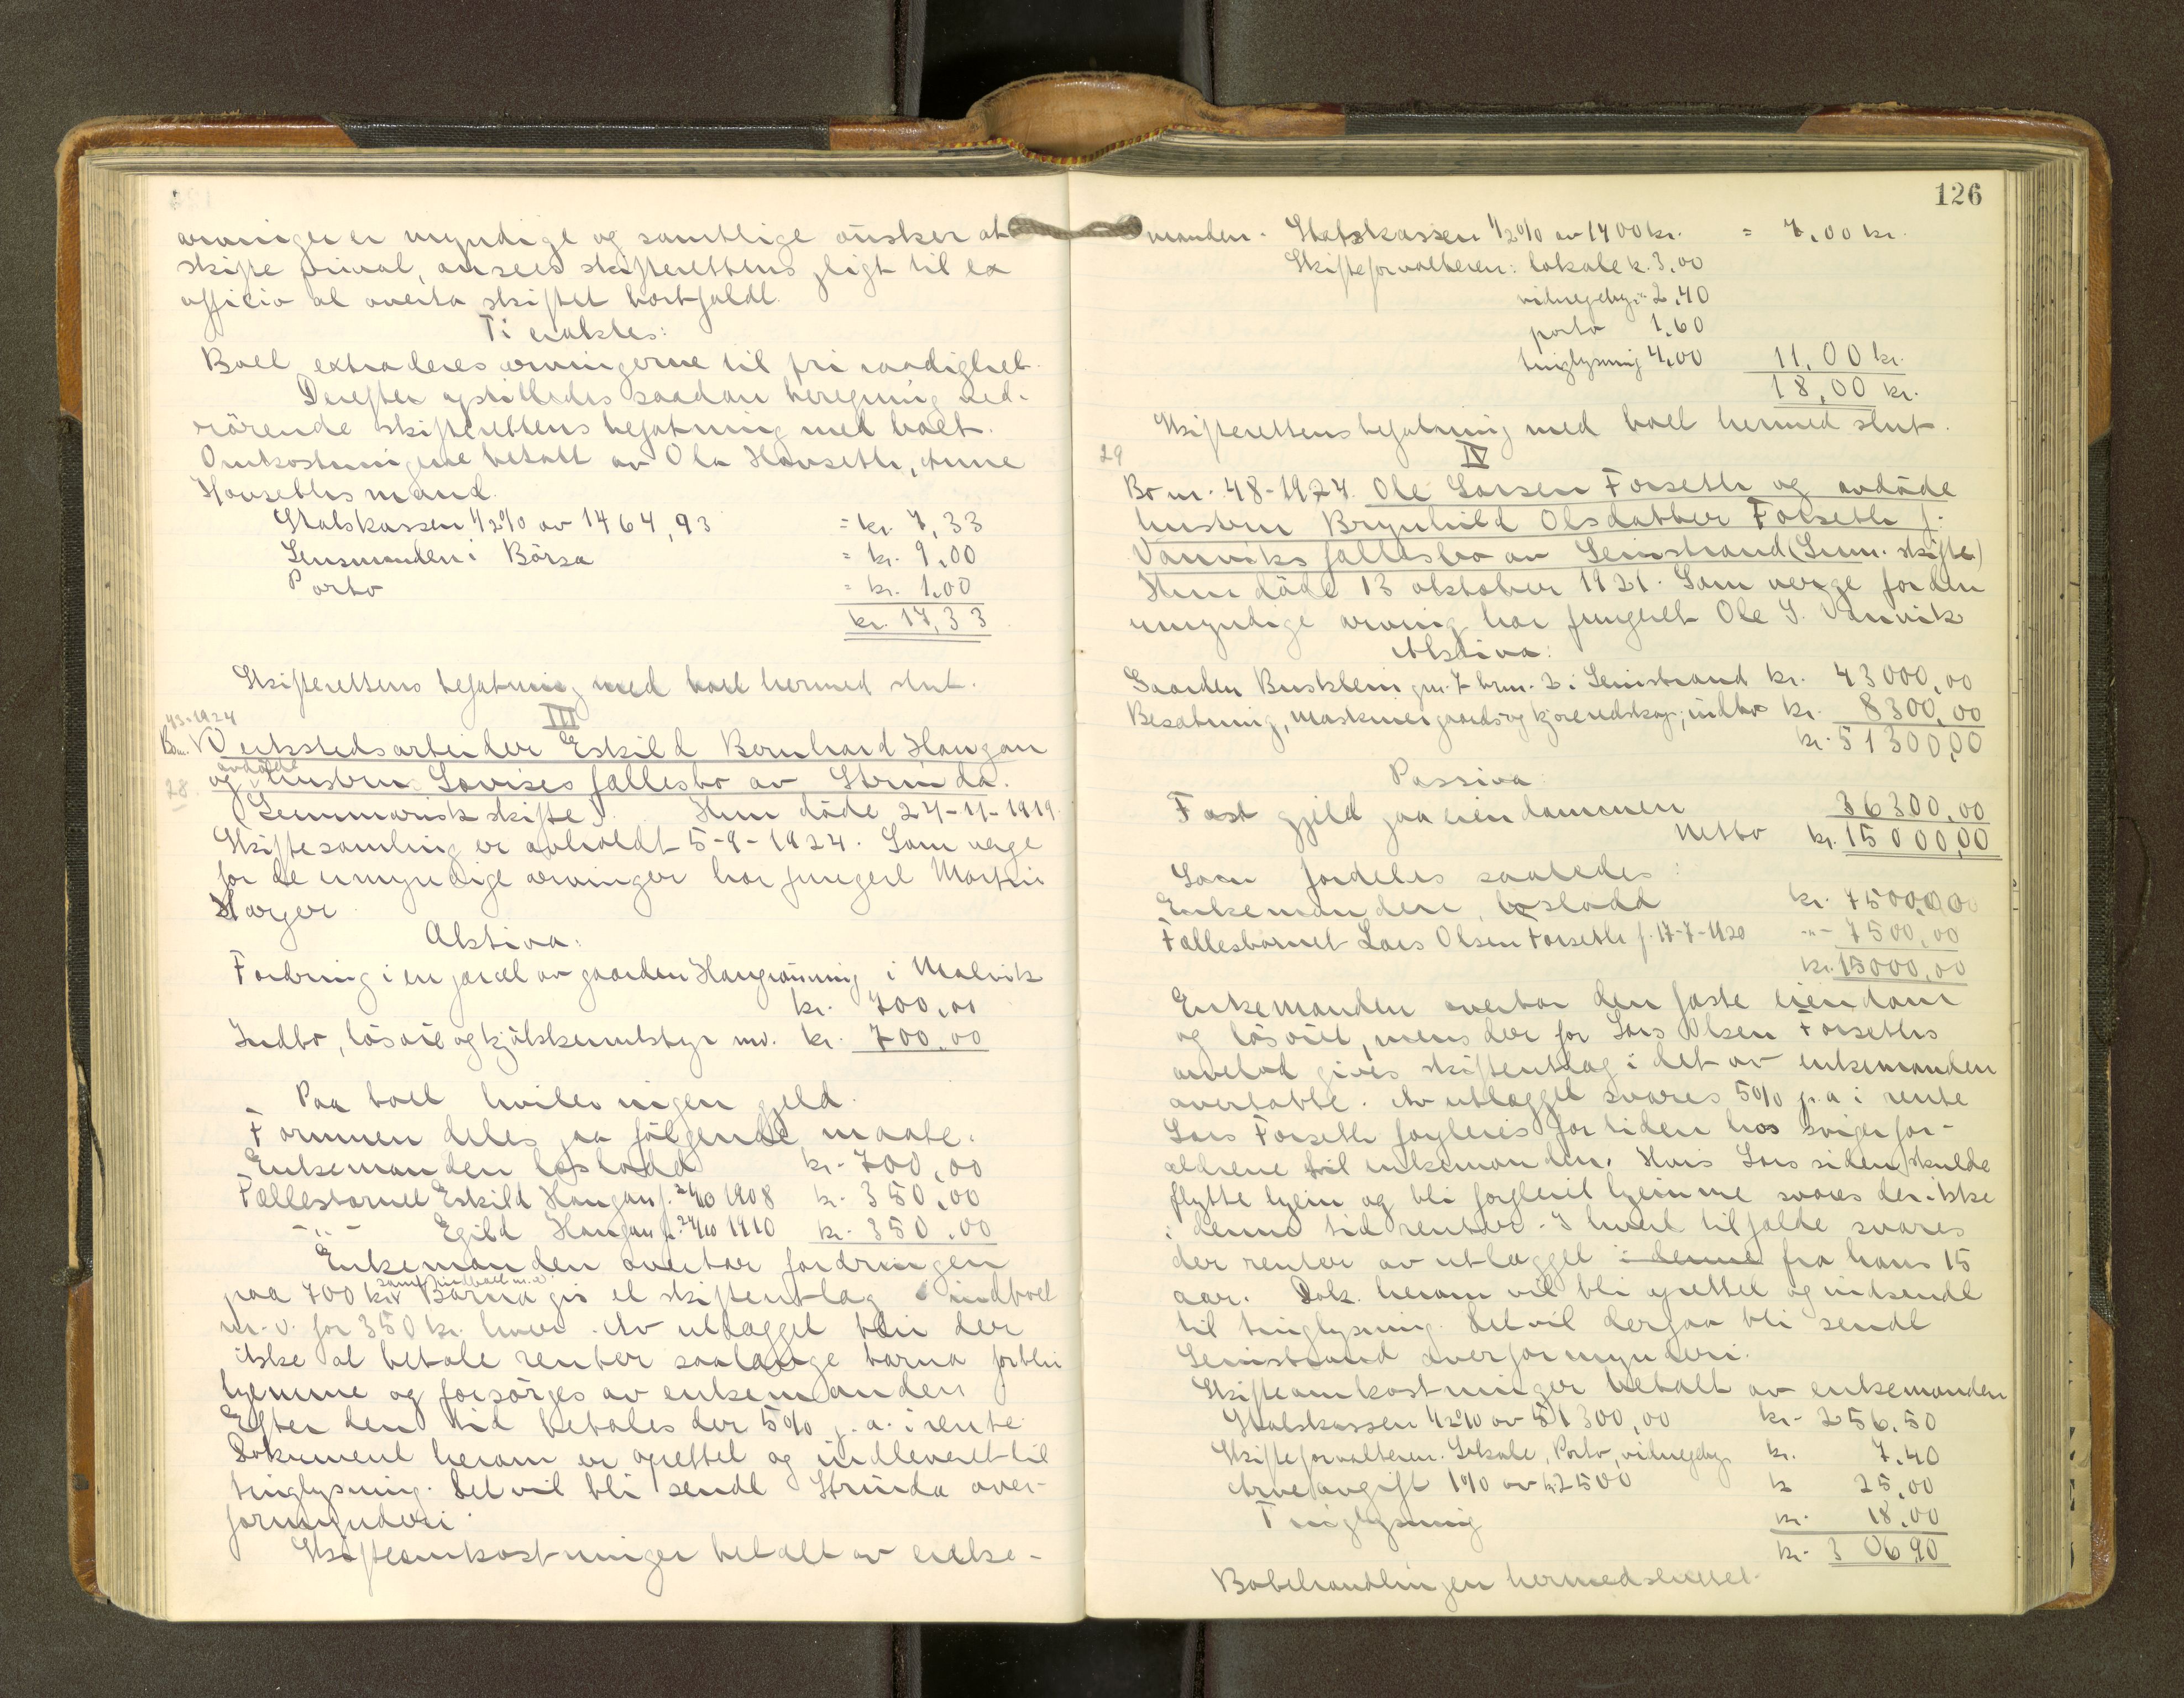 arvinger er myndige og samtlige önsker at
skifte privat, ansees skifterettens pligt til ex
officio at overta skiftet bortfaldt.
Ti eraktes:
Boet extraderes arvingerne til fri raadighet.
Derefter opstilledes saadan beregning ved-
rörende skifterettens befatning med boet.
Omkostningerne betalt av Ola Havseth,
Havseths mand.
Statskassen 1/2% av 1464,93 = kr. 7,33
Lensmanden i Börsa = kr. 9,00
Porto = kr. 1,00
kr. 17,33
Skifterettens befatning med boet hermed slut.
III
43-1924
Bo nr. Verkstedsarbeider Eskild Bernhard Haugan
avdöde
28. og hustru Lovises fællesbo av Strinda.
(Summarisk skifte). Hun döde 24-11-1919.
Skiftesamling er avholdt 5-9-1924. Som verge
for de umyndige arvinger har fungert Martin
Aktiva:
Fordring i en parcel av gaarden i Malvik
kr. 700,00
Indbo, lösöre og kjökkenutstyr mv. kr. 700,00
Paa boet hviler ingen gjeld.
Formuen deles paa fölgende maate.
Enkemanden boslodd kr. 700,00
Fællesbarnet Eskild Haugan f. 24/10 1908 kr. 350,00
-"- Egild Haugan f. 24/10 1910 kr. 350,00
Enkemanden overtar fordringen
samt indboet m.v.
paa 700 kr. Barna gis et skifteutlæg i indboet
m.v. for 350 kr. hver. Av utlægget blir der
ikke at betale renter saalænge barna forblir
hjemme og forsörges av enkemanden
Efter den tid betales der 5% p.a. i rente.
Dokument herom er oprettet og indleveret til
tinglysning. Det vil bli sendt Strinda over-
formynderi.
Skifteomkostninger betalt av enke-
126
manden. Statskassen 1/2% av 1400 kr. = 7,00 kr.
Skifteforvalteren: lokale k. 3,00
vidnegeby. " 2,40
porto 1,60
tinglysning 4,00 11,00 kr.
18,00 kr.
Skifterettens befatning med boet hermed slut.
29
IV
Bo nr. 48-1924. Ole Larsen Forseth og avdöde
hustru Brynhild Olsdatter Forseth f.
Vanviks fællesbo av Leinstrand (Sum. skifte)
Hun döde 13 oktober 1921. Som verge for den
umyndige arving har fungeret Ole J. Vanvik
Aktiva:
Gaarden Busklein gnr. 7 brnr. 2 i Leinstrand kr. 43000,00
Besætning, maskiner gaards og kjöreredskap, indbo kr. 8300,00
kr. 51300,00
Passiva
Fast gjeld paa eiendommen 36300,00
Netto kr. 15000,00
Som fordeles saaledes:
Enkemanden, boslodd kr. 7500,00
Fællesbarnet Lars Olsen Forseth f. 17-7-1920 -"- 7500,00
kr. 15000,00
Enkemanden overtar den faste eiendom
og lösöret, mens der for Lars Olsen Forseths
arvelod gives skifteutlæg i det av enkemanden
overtatte. Av utlægget svares 5% p.a i rente
Lars Forseth forpleies for tiden hos sviger for-
ældrene til enkemanden. Hvis Lars siden skulde
flytte hjem og bli forpleiet hjemme svares der ikke
i denne tid renter. I hvert tilfælde svares
der renter av utlægget i denne fra hans 15
aar. Dok. herom vil bli oprettet og indsendt
til tinglysning. Det vil derpaa bli sendt
Leinstrand overformynderi.
Skifteomkostninger betalt av enkemanden
Statskassen 1/2% av 51300,00 kr. 256,50
Skifteforvalteren. Lokale, Porto, vidnegeby. kr. 7,40
Arveavgift 1% av k. 2500 k 25,00
Tinglysning kr. 18,00
kr. 306,90
Bobehandlingen hermed sluttet.